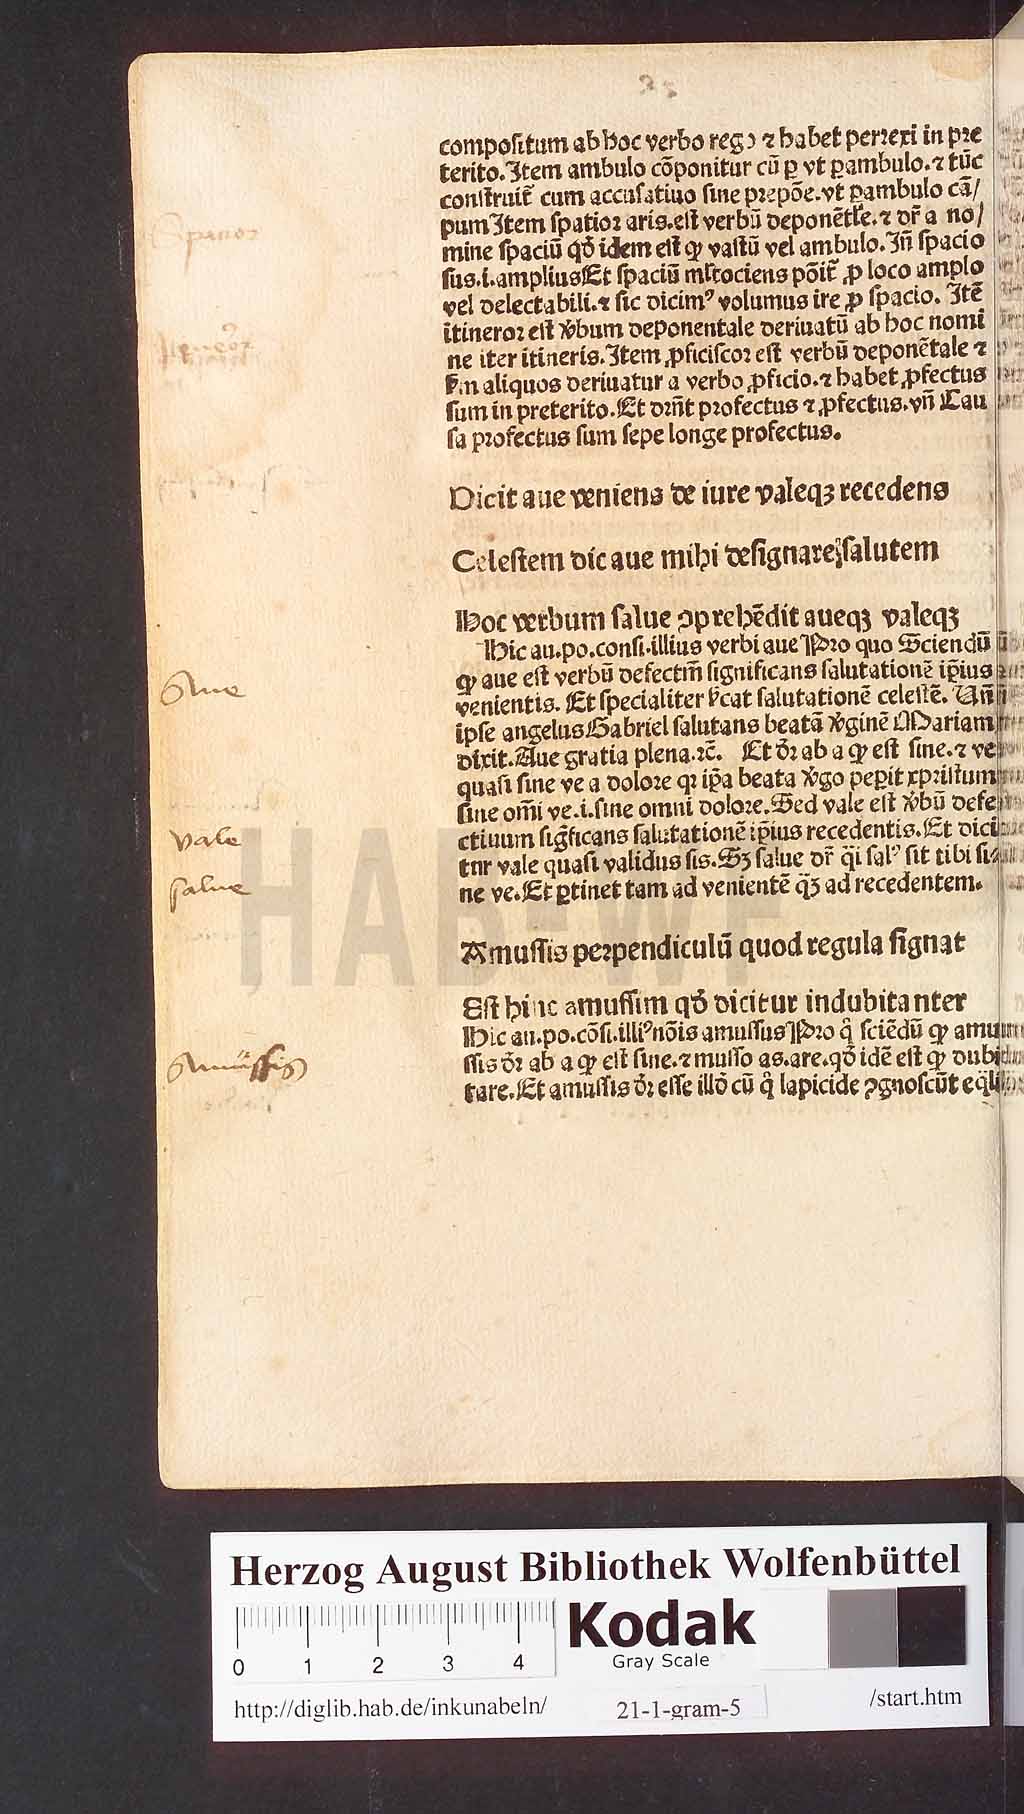 compositum ab hoc verbo rego ⁊ habet perrexi in pre
terito. Item ambulo cōponitur cū ꝑ vt ꝑambulo. ⁊ tūc
construit̄ cum accusatiuo sine prepōe. vt ꝑambulo cā/
pum Item spatior aris. est verbū deponētle. ⁊ dr̄ a no/
mine spaciū qđ idem est ꝙ vastū vel ambulo. Iñ spacio
sus .i. amplius Et spaciū mltociens pōit̄ ꝓ loco amplo
vel delectabili. ⁊ sic dicimꝰ volumus ire ꝓ spacio. Itē
itineror est v̓bum deponentale deriuatū ab hoc nomi
ne iter itineris. Item ꝓficiscor est verbū deponētale ⁊
ẜm aliquos deriuatur a verbo ꝓficio. ⁊ habet ꝓfectus
sum in preterito. Et drn̄t profectus ⁊ ꝓfectus. vn̄ Cau
sa profectus sum sepe longe profectus.
Dicit aue veniens de iure valeqꝫ recedens
Celestem dic aue mihi designare salutem
Hoc verbum salue ꝯprehēdit aueqꝫ valeqꝫ
Hic au. po. consi. illius verbi aue Pro quo Sciendū
ꝙ aue est verbū defectm̄ significans salutationē ip̄ius
venientis. Et specialiter ẜcat salutationē celestē. Un̄
ipse angelus Gabriel salutans beatā v̓ginē Mariam
dixit. Aue gratia plena. ⁊c̄. Et dr̄ ab a ꝙ est sine. ⁊ ve
quasi sine ve a dolore qꝛ ip̄a beata v̓go peꝑit xpristum
sine om̄i ve .i. sine omni dolore. Sed vale est v̓bū defe
ctiuum siḡficans salutationē ip̄ius recedentis. Et dici
tnr vale quasi validus sis. Sꝫ salue dr̄ q̄i salꝰ sit tibi si-
ne ve. Et ꝑtinet tam ad venientē q̄ꝫ ad recedentem.
Amussis perpendiculū quod regula signat
Est hinc amussim qđ dicitur indubitanter
Hic au. po. cōsi. illiꝰ nōis amussus Pro q̊ sciēdū ꝙ amu
ssis dr̄ ab a ꝙ est sine. ⁊ musso as. are. qđ idē est ꝙ dubi
tare. Et amussis dr̄ esse illđ cū q̊ lapicide ꝯgnoscūt eq̄li
Aue
vale
salue
Amussis
HAB-WF
Herzog August Bibliothek Wolfenbüttel
0 1 2 3 4
Kodak
Gray Scale
http://diglib.hab.de/inkunabeln/ 21-1-gram-5 /start.htm